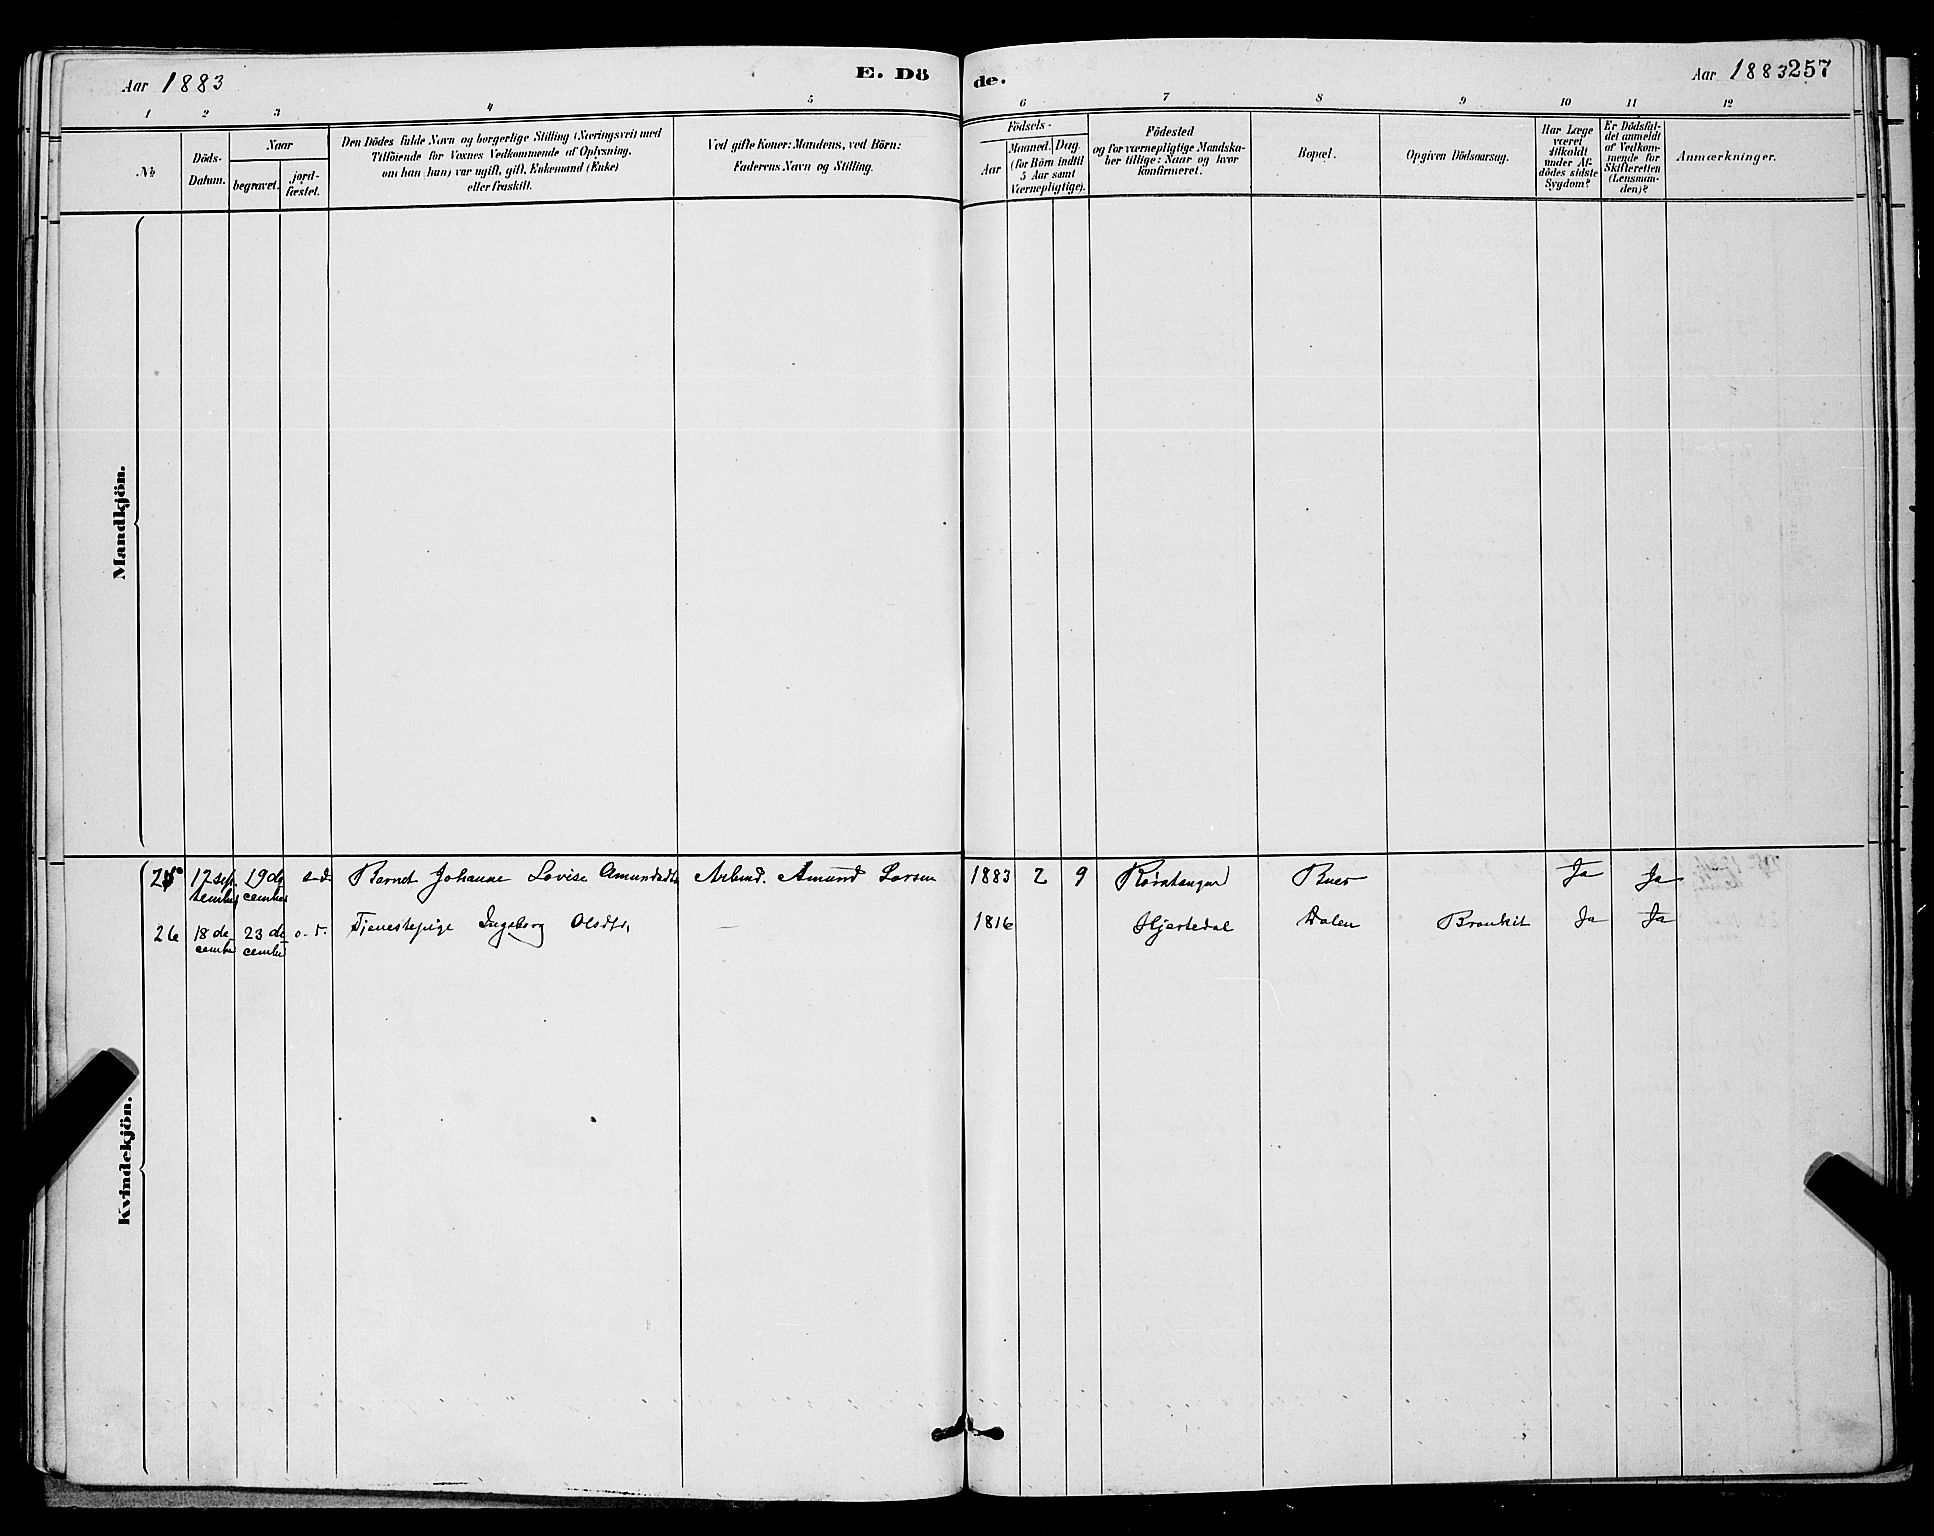 Aar 1883 E. Dö
de. Aar 1883 257
1 2 3 4 5 6 7 8 9 10 11 12
No
Döds-
Datum.
Naar
begravet.
jord-
fæstet.
Den Dödes fulde Navn og borgerlige Stilling (Næringsvei) med
Tilföiende for Voxnes Vedkommende af Oplysning,
om han (hun) var ugift, gift, Enkemand (Enke)
eller fraskilt.
Ved gifte Koner: Mandens, ved Börn:
Faderens Navn og Stilling.
Födsels-
Aar
Maaned. Dag
(for Börn indtil
5 Aar samt
Værnepligtige).
Födested
og for værnepligtige Mandska-
ber tillige: Naar og hvor
konfirmeret.
Bopæl.
Opgiven Dödsaarsag.
Har Læge
været
tilkaldt
under Af-
dödes sidste
Sygdom?
Er Dödsfal-
det anmeldt
af Vedkom-
mende for
Skifteretten
(Lensman-
den)?
Anmærkninger.
Mandkjön.
Kvindekjön.
25 12 sep 19 de Barnet Johanne Lovise Amundsdtr Arbmd. Amund Larsen 1883 2 9 Buer Ja Ja
tember cember
26 18 de 23 de Tjenestepige Ingeborg Olsdtr. — 1816 Hjertedal Dalen Bronkit Ja Ja
cember cember